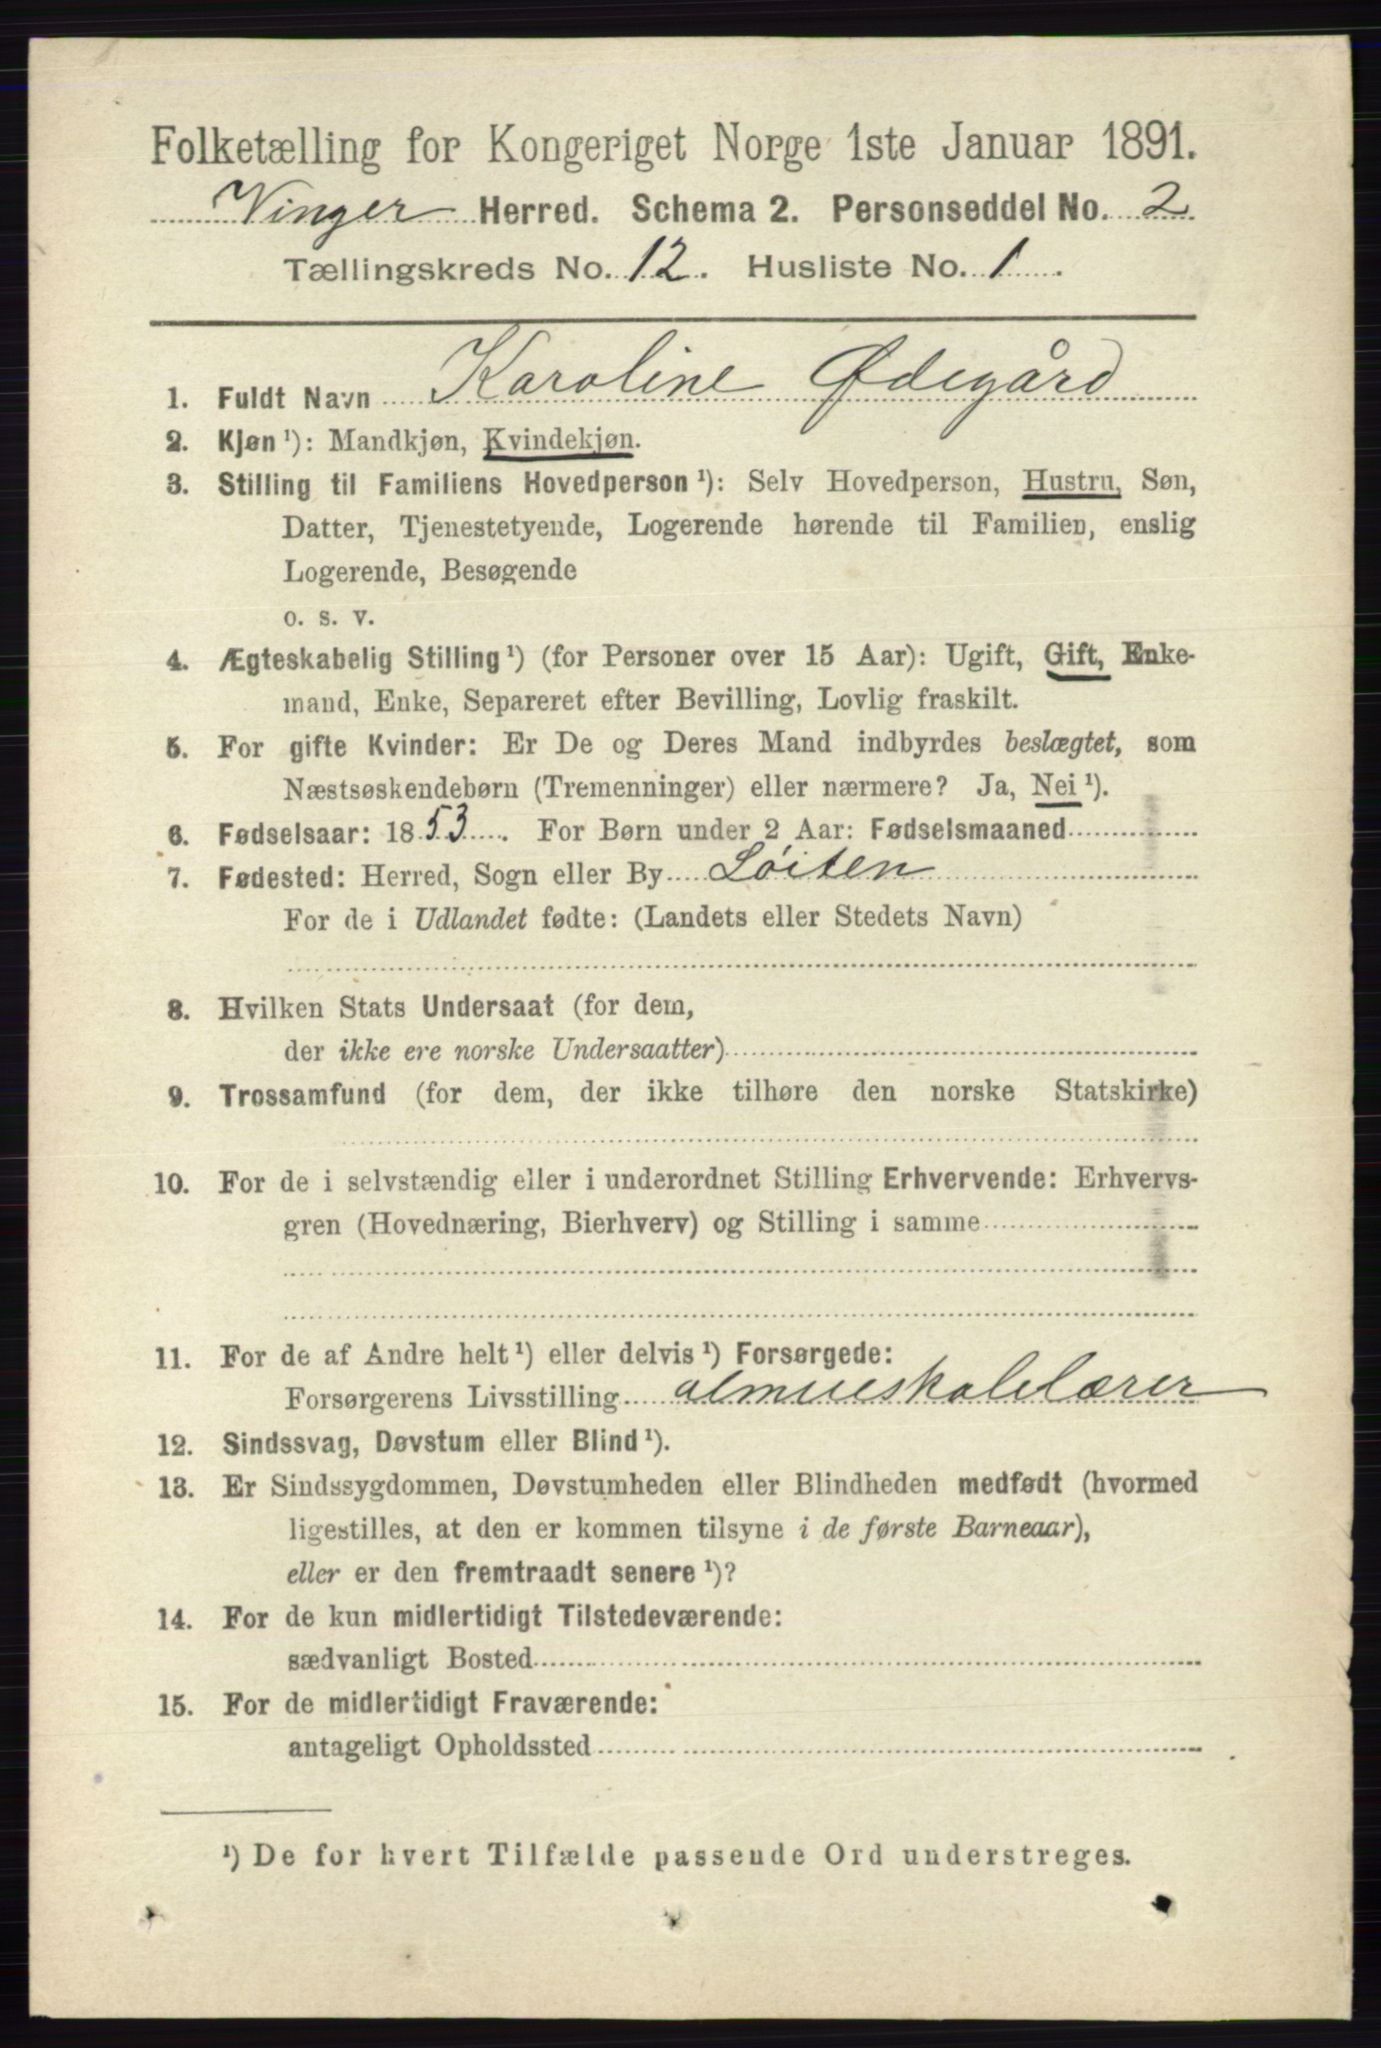 Folketælling for Kongeriget Norge 1ste Januar 1891.
Vinger Herred. Schema 2. Personseddel No. 2
Tællingskreds No. 12. Husliste No. 1.
1. Fuldt Navn Karoline Ødegård
2. Kjøn ¹): Mandkjøn, Kvindekjøn.
3. Stilling til Familiens Hovedperson ¹): Selv Hovedperson, Hustru, Søn,
Datter, Tjenestetyende, Logerende hørende til Familien, enslig
Logerende, Besøgende
o. s. v.
4. Ægteskabelig Stilling ¹) (for Personer over 15 Aar): Ugift, Gift, Enke-
mand, Enke, Separeret efter Bevilling, Lovlig fraskilt.
5. For gifte Kvinder: Er De og Deres Mand indbyrdes beslægtet, som
Næstsøskendebørn (Tremenninger) eller nærmere? Ja, Nei ¹).
6. Fødselsaar: 1853. For Børn under 2 Aar: Fødselsmaaned
7. Fødested: Herred, Sogn eller By Löiten
For de i Udlandet fødte: (Landets eller Stedets Navn)
8. Hvilken Stats Undersaat (for dem,
der ikke ere norske Undersaatter)
9. Trossamfund (for dem, der ikke tilhøre den norske Statskirke)
10. For de i selvstændig eller i underordnet Stilling Erhvervende: Erhvervs-
gren (Hovednæring, Bierhverv) og Stilling i samme
11. For de af Andre helt ¹) eller delvis ¹) Forsørgede:
Forsørgerens Livsstilling almueskolelærer
12. Sindssvag, Døvstum eller Blind ¹).
13. Er Sindssygdommen, Døvstumheden eller Blindheden medfødt (hvormed
ligestilles, at den er kommen tilsyne i de første Barneaar),
eller er den fremtraadt senere ¹)?
14. For de kun midlertidigt Tilstedeværende:
sædvanligt Bosted
15. For de midlertidigt Fraværende:
antageligt Opholdssted
¹) De for hvert Tilfælde passende Ord understreges.